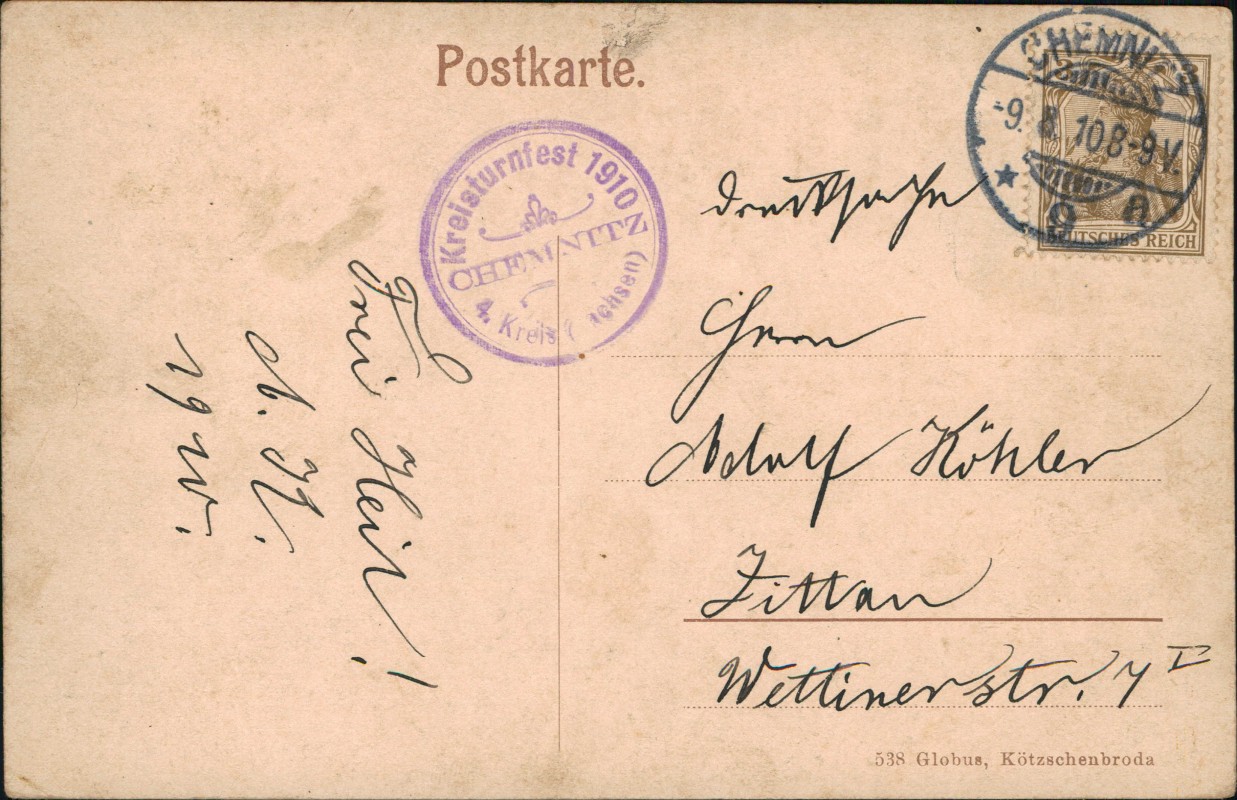 Postkarte.
CHEMNITZ
-9. 8. 10 8-9 V.
* 9 a
DEUTSCHES REICH
Kreisturnfest 1910
CHEMNITZ
4. Kreis (achsen)
Drucksache
Herrn
Adolf Köhler
Zittau
Wettinerstr. 7 I
Frei Heil!
A. K.
19 W.
538 Globus, Kötzschenbroda